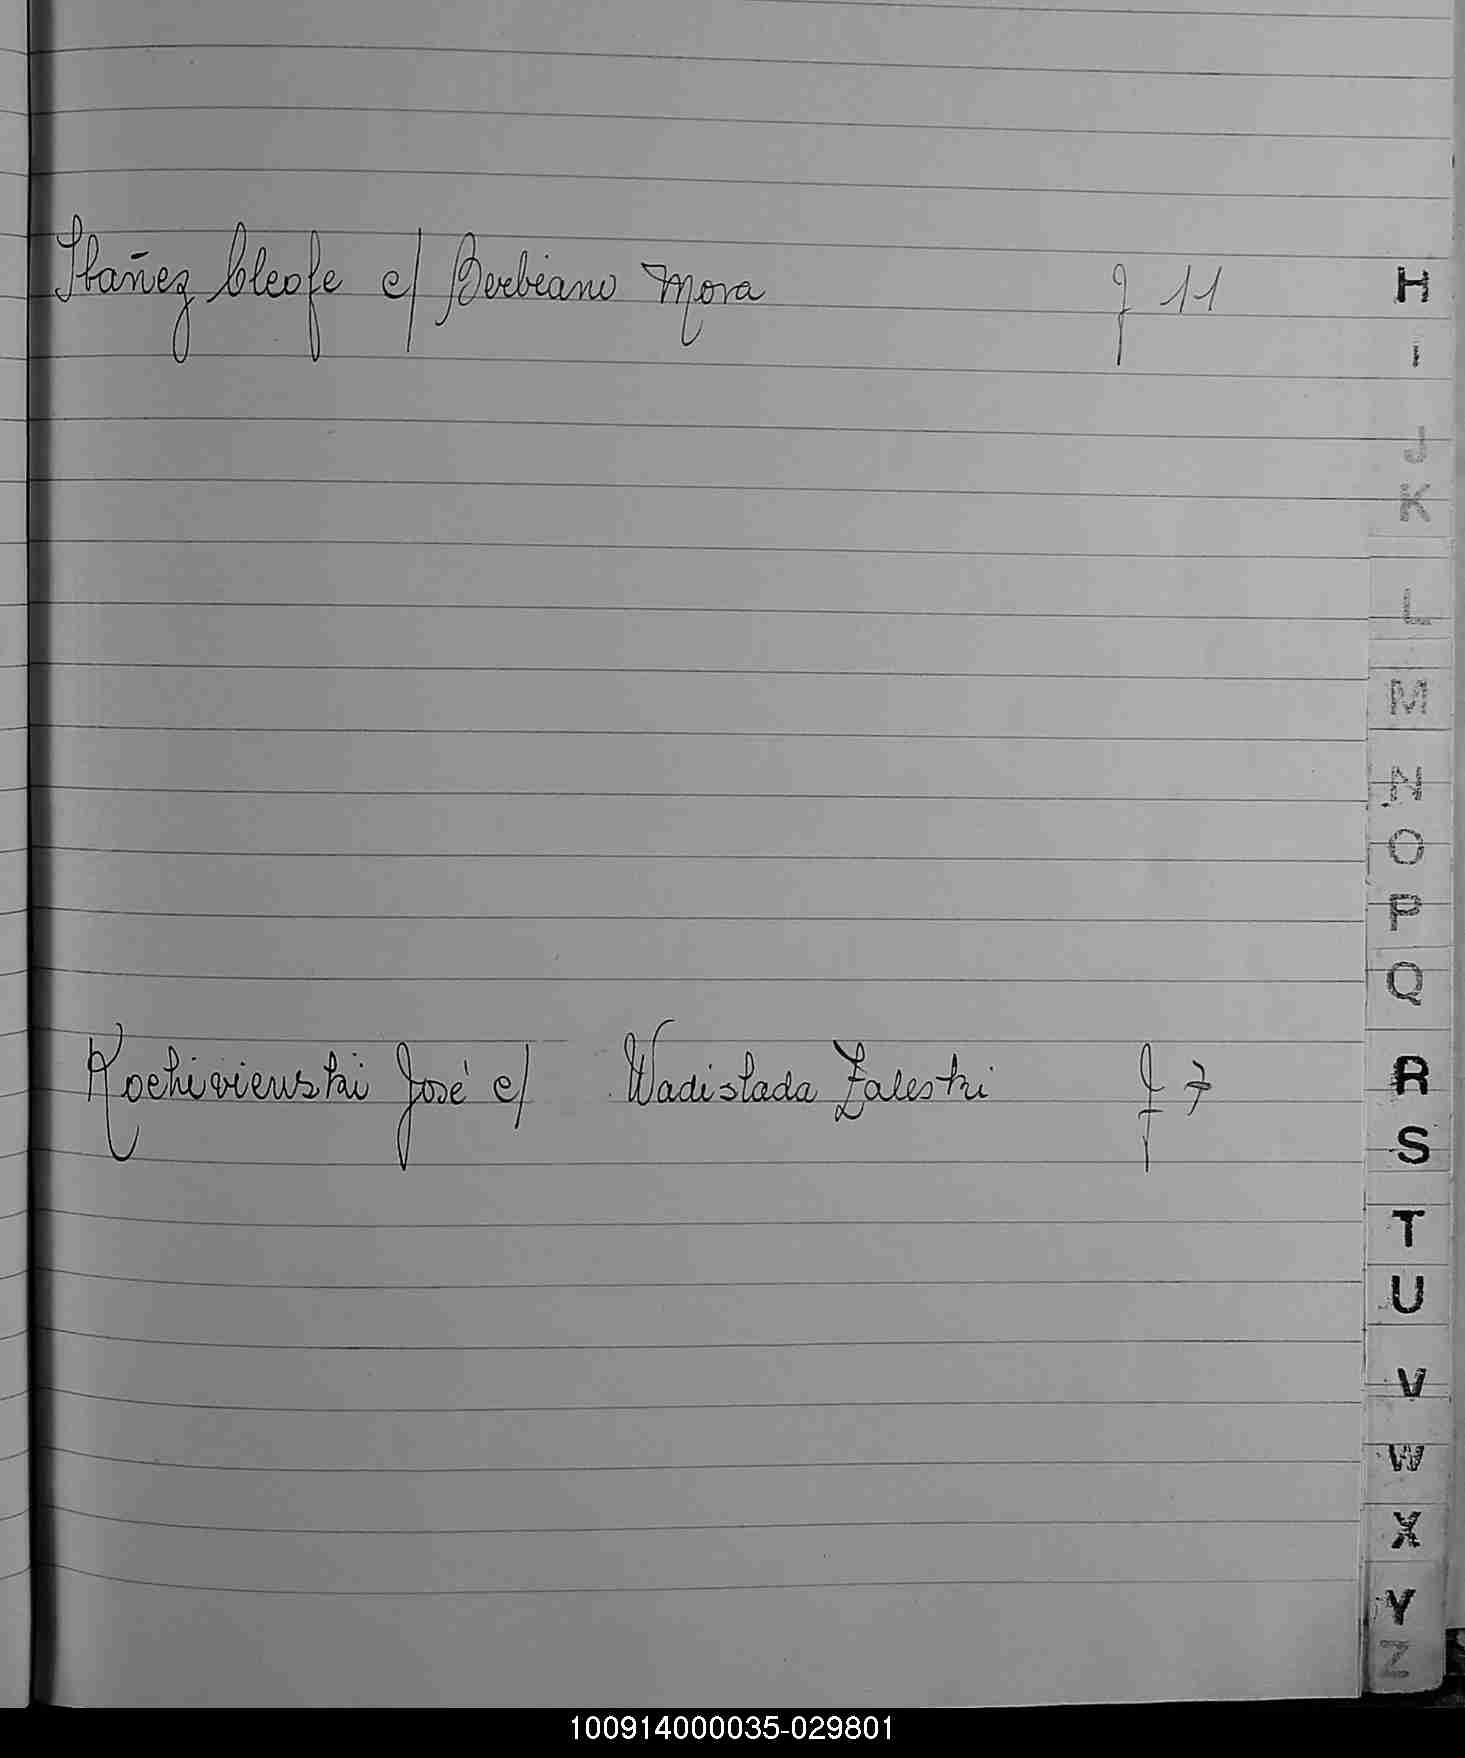 Ibañez Cleofe c/ Berbeano Mora f 11
H
I
J
K
L
M
N
O
P
Q
Kochivienski José c/ Wadislada Zaleski f 7
R
S
T
U
V
W
X
Y
Z
100914000035-029801